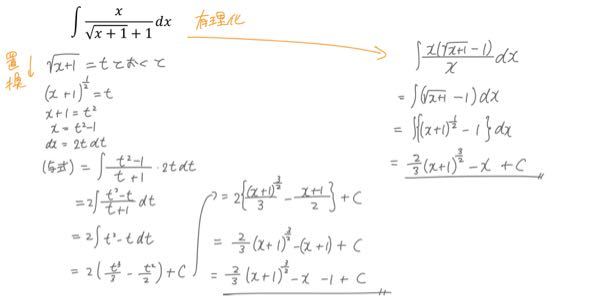 ∫ x/(√(x+1)+1) dx
有理化
置換
√(x+1) = tとおくと
(x+1)^(1/2) = t
x+1 = t²
x = t²-1
dx = 2t dt
(与式) = ∫ (t²-1)/(t+1) · 2t dt
= 2∫ (t³-t)/(t+1) dt
= 2∫ t²-t dt
= 2(t³/3 - t²/2) + C
= 2{(x+1)^(3/2)/3 - (x+1)/2} + C
= 2/3 (x+1)^(3/2) - (x+1) + C
= 2/3 (x+1)^(3/2) - x - 1 + C
∫ x(√(x+1) - 1)/x dx
= ∫ (√(x+1) - 1) dx
= ∫ {(x+1)^(1/2) - 1} dx
= 2/3 (x+1)^(3/2) - x + C